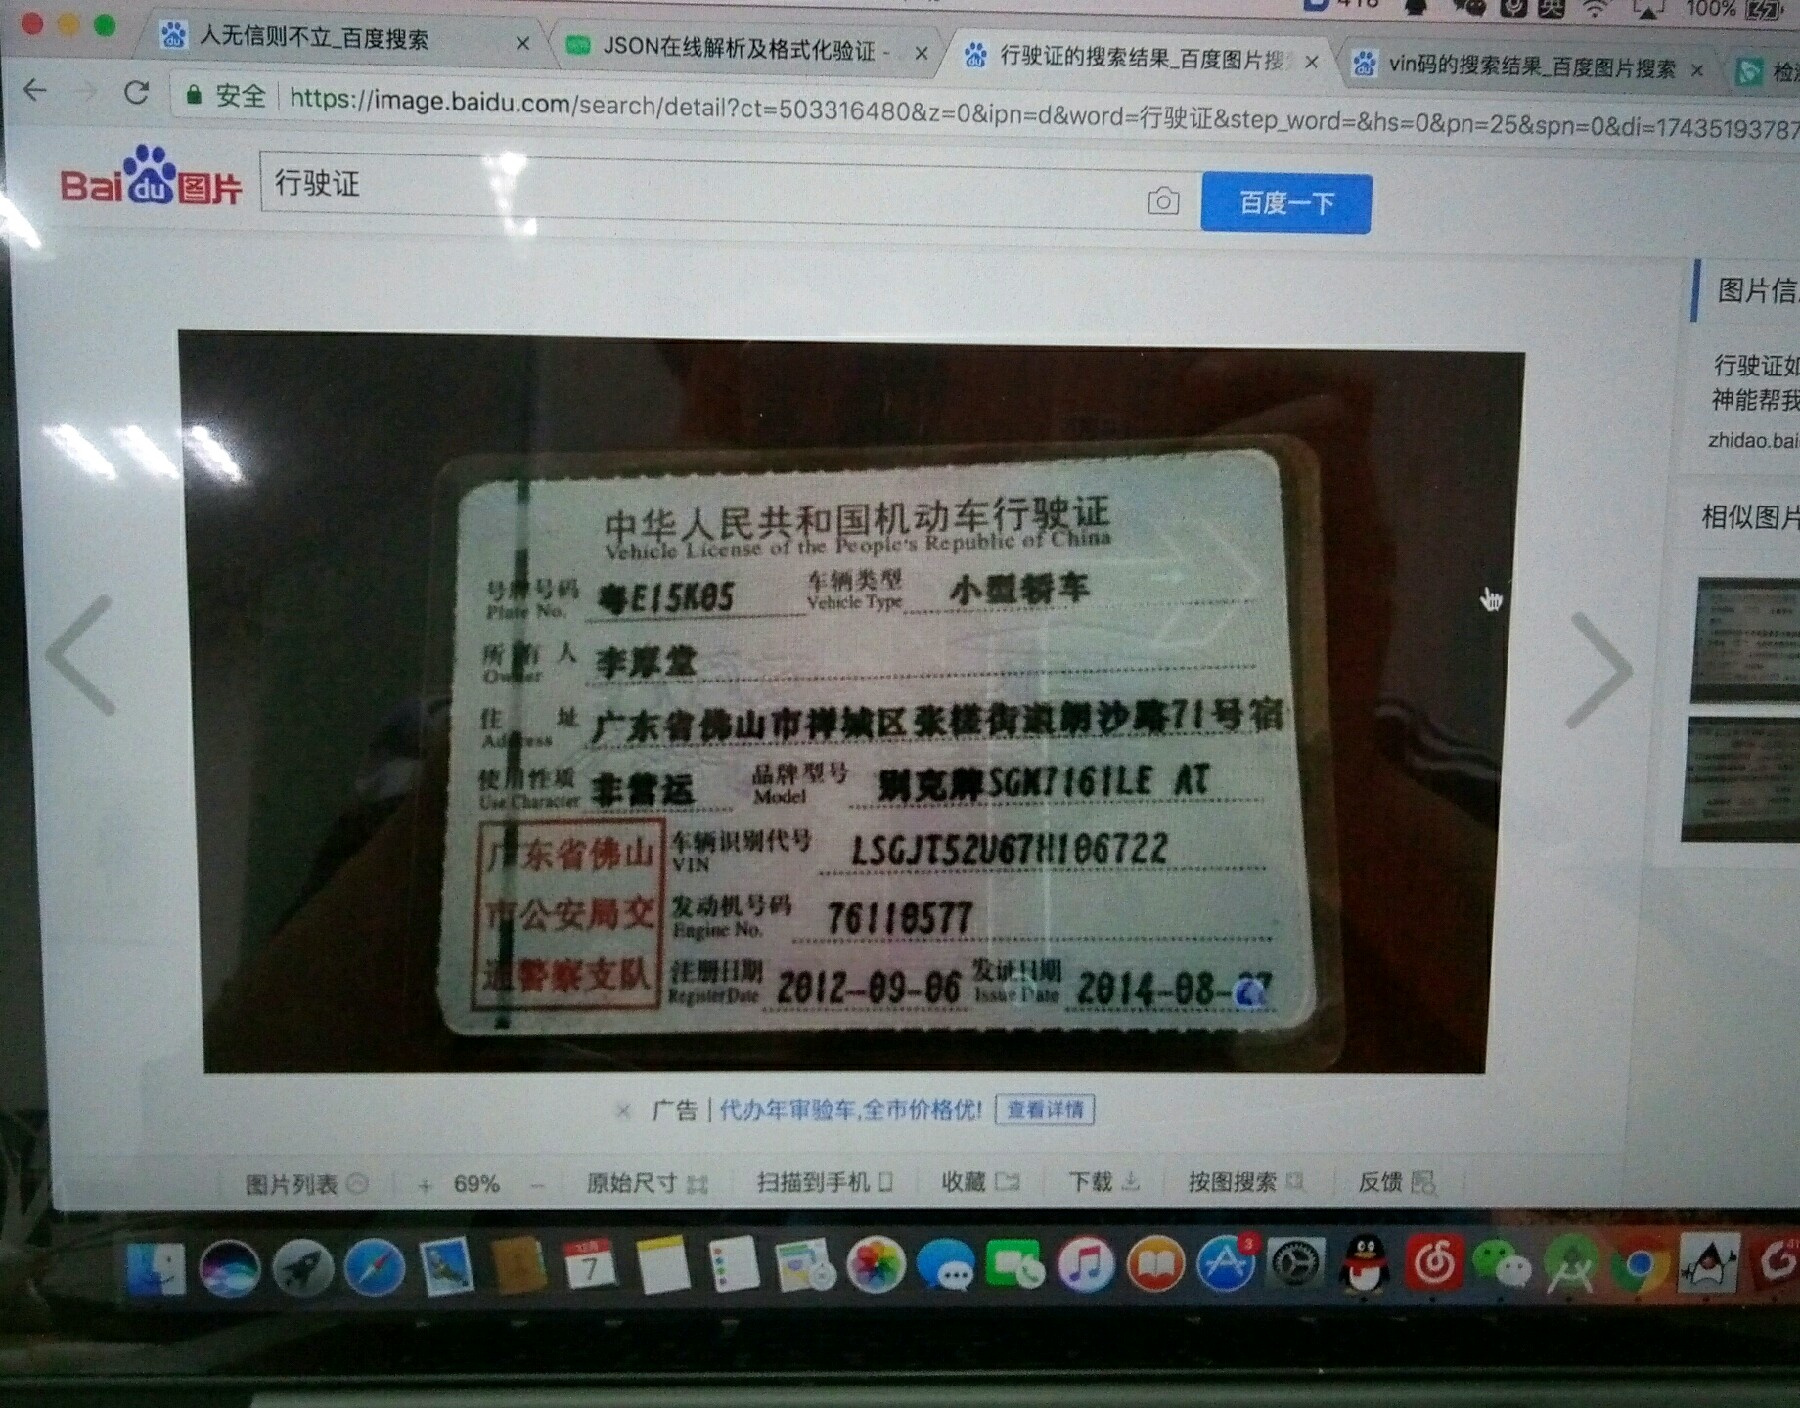 100%
人无信则不立_百度搜索
JSON在线解析及格式化验证 -
行驶证的搜索结果_百度图片搜
vin码的搜索结果_百度图片搜索
安全 https://image.baidu.com/search/detail?ct=503316480&z=0&ipn=d&word=行驶证&step_word=&hs=0&pn=25&spn=0&di=17435193787
Baidu图片
行驶证
百度一下
图片信
行驶证如
神能帮我
zhidao.bai
相似图片
中华人民共和国机动车行驶证
Vehicle License of the People's Republic of China
号牌号码 粤E15K05 车辆类型 小型轿车
Plate No. Vehicle Type
所有人 李厚堂
Owner
住址 广东省佛山市禅城区张槎街道朗沙路71号宿
Address
使用性质 非营运 品牌型号 别克牌SGM7161LE AT
Use Character Model
广东省佛山
市公安局交
通警察支队
车辆识别代号 LSGJT52U67H106722
VIN
发动机号码 76110577
Engine No.
注册日期 2012-09-06 发证日期 2014-08-27
Register Date Issue Date
广告 | 代办年审验车,全市价格优! 查看详情
图片列表 + 69% - 原始尺寸 扫描到手机 收藏 下载 按图搜索 反馈
12月
7
3